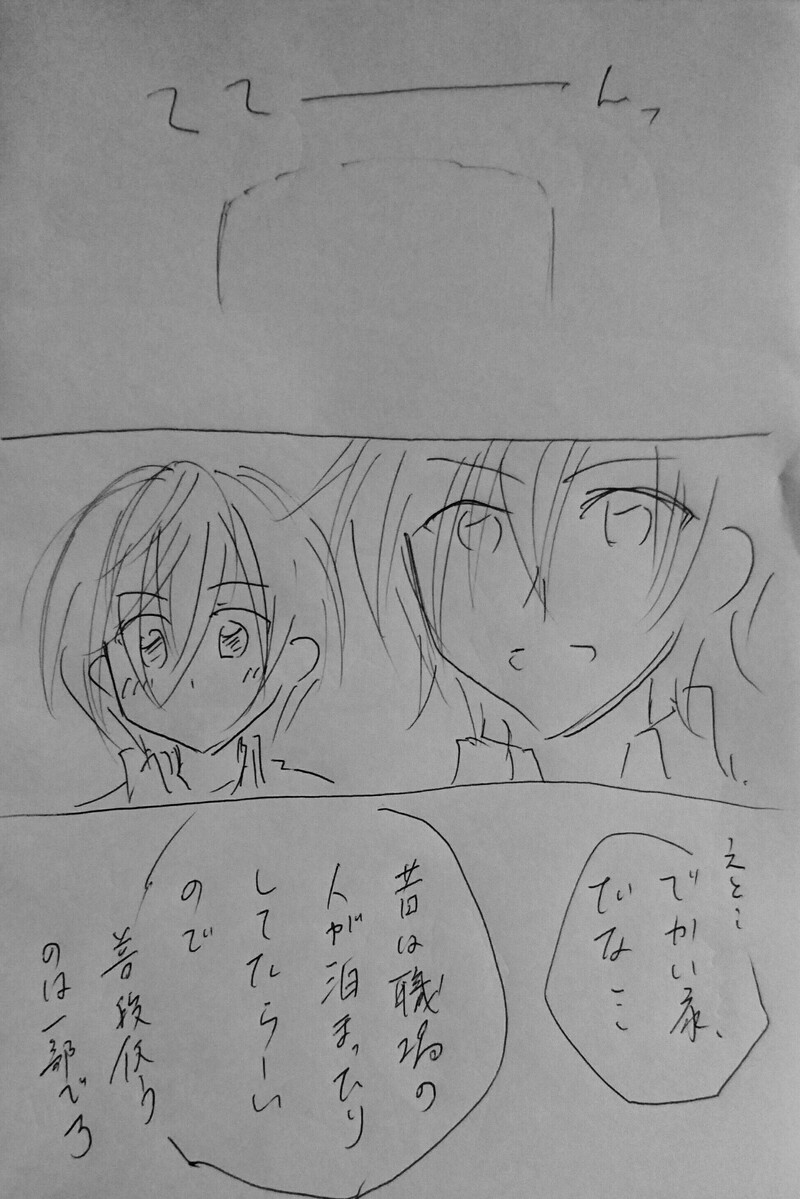 ててーーーんっ
えと…
でかい家、
だな…
昔は職場の
人が泊まったり
してたらしい
ので
普段使う
のは一部でろ